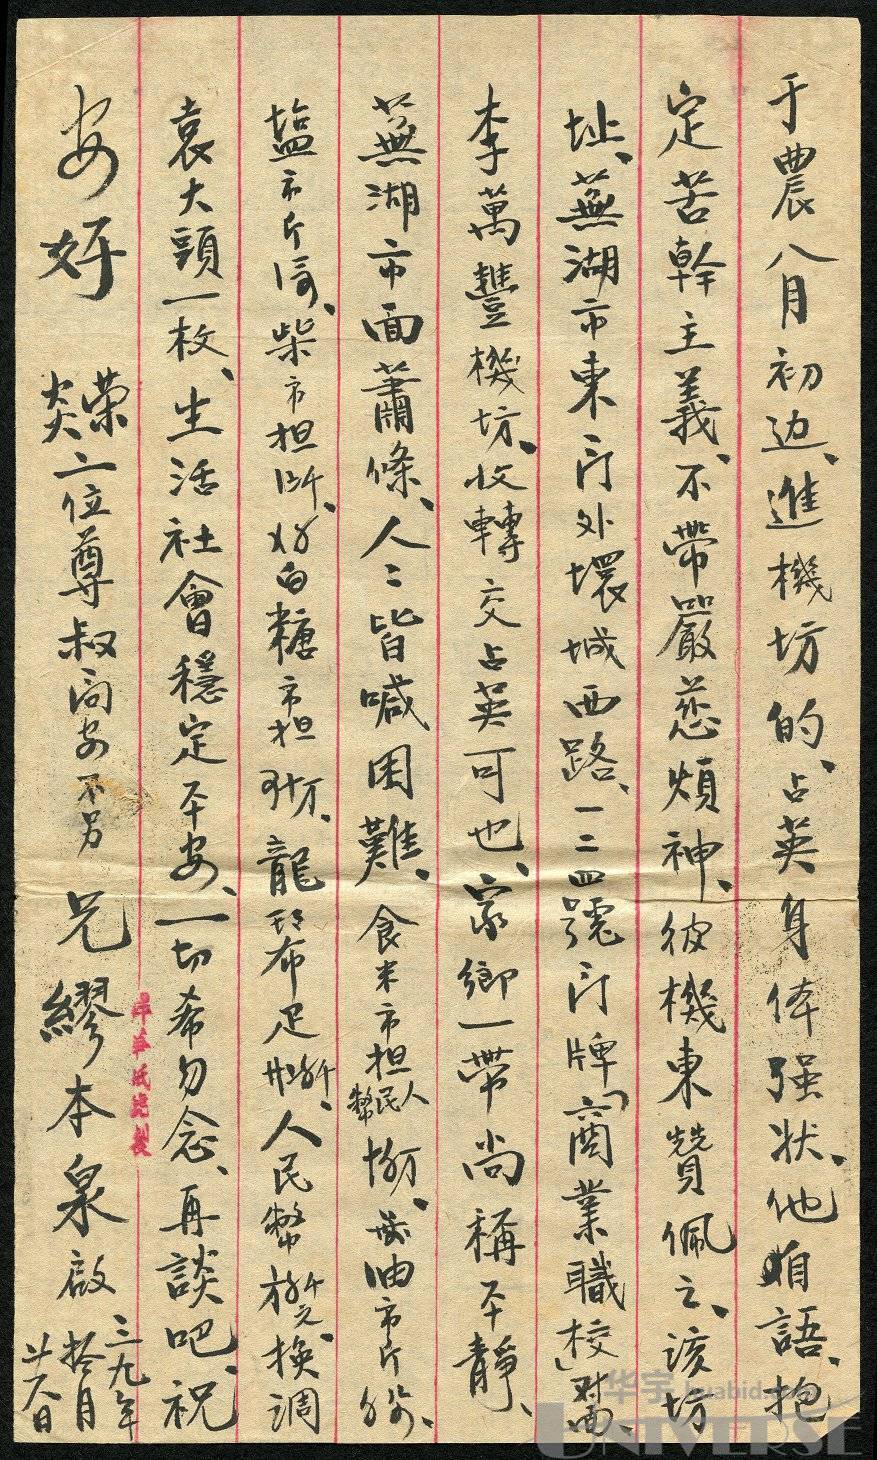 于農八月初边、進機坊的、占英身体强状、他自語、抱
定苦幹主義、不帶嚴慈煩神、彼機東贊佩之、该坊
址、蕪湖市東门外環城西路、一二四號门牌、「商業職校」对面、
李萬豐機坊、收轉交占英可也、家鄉一帶尚稱平靜、
蕪湖市面蕭條、人〻皆喊困難、食米市担人民幣 油市斤
塩市斤 柴市担 白糖市担 龍 布疋 人民幣 换調
袁大頭一枚、生活社會穩定平安、一切希勿念、再談吧、祝
安好 榮炎二位尊叔同安不另 兄繆本泉啟 三九年拾月廿八日
华宇 huabid.com
UNIVERSE